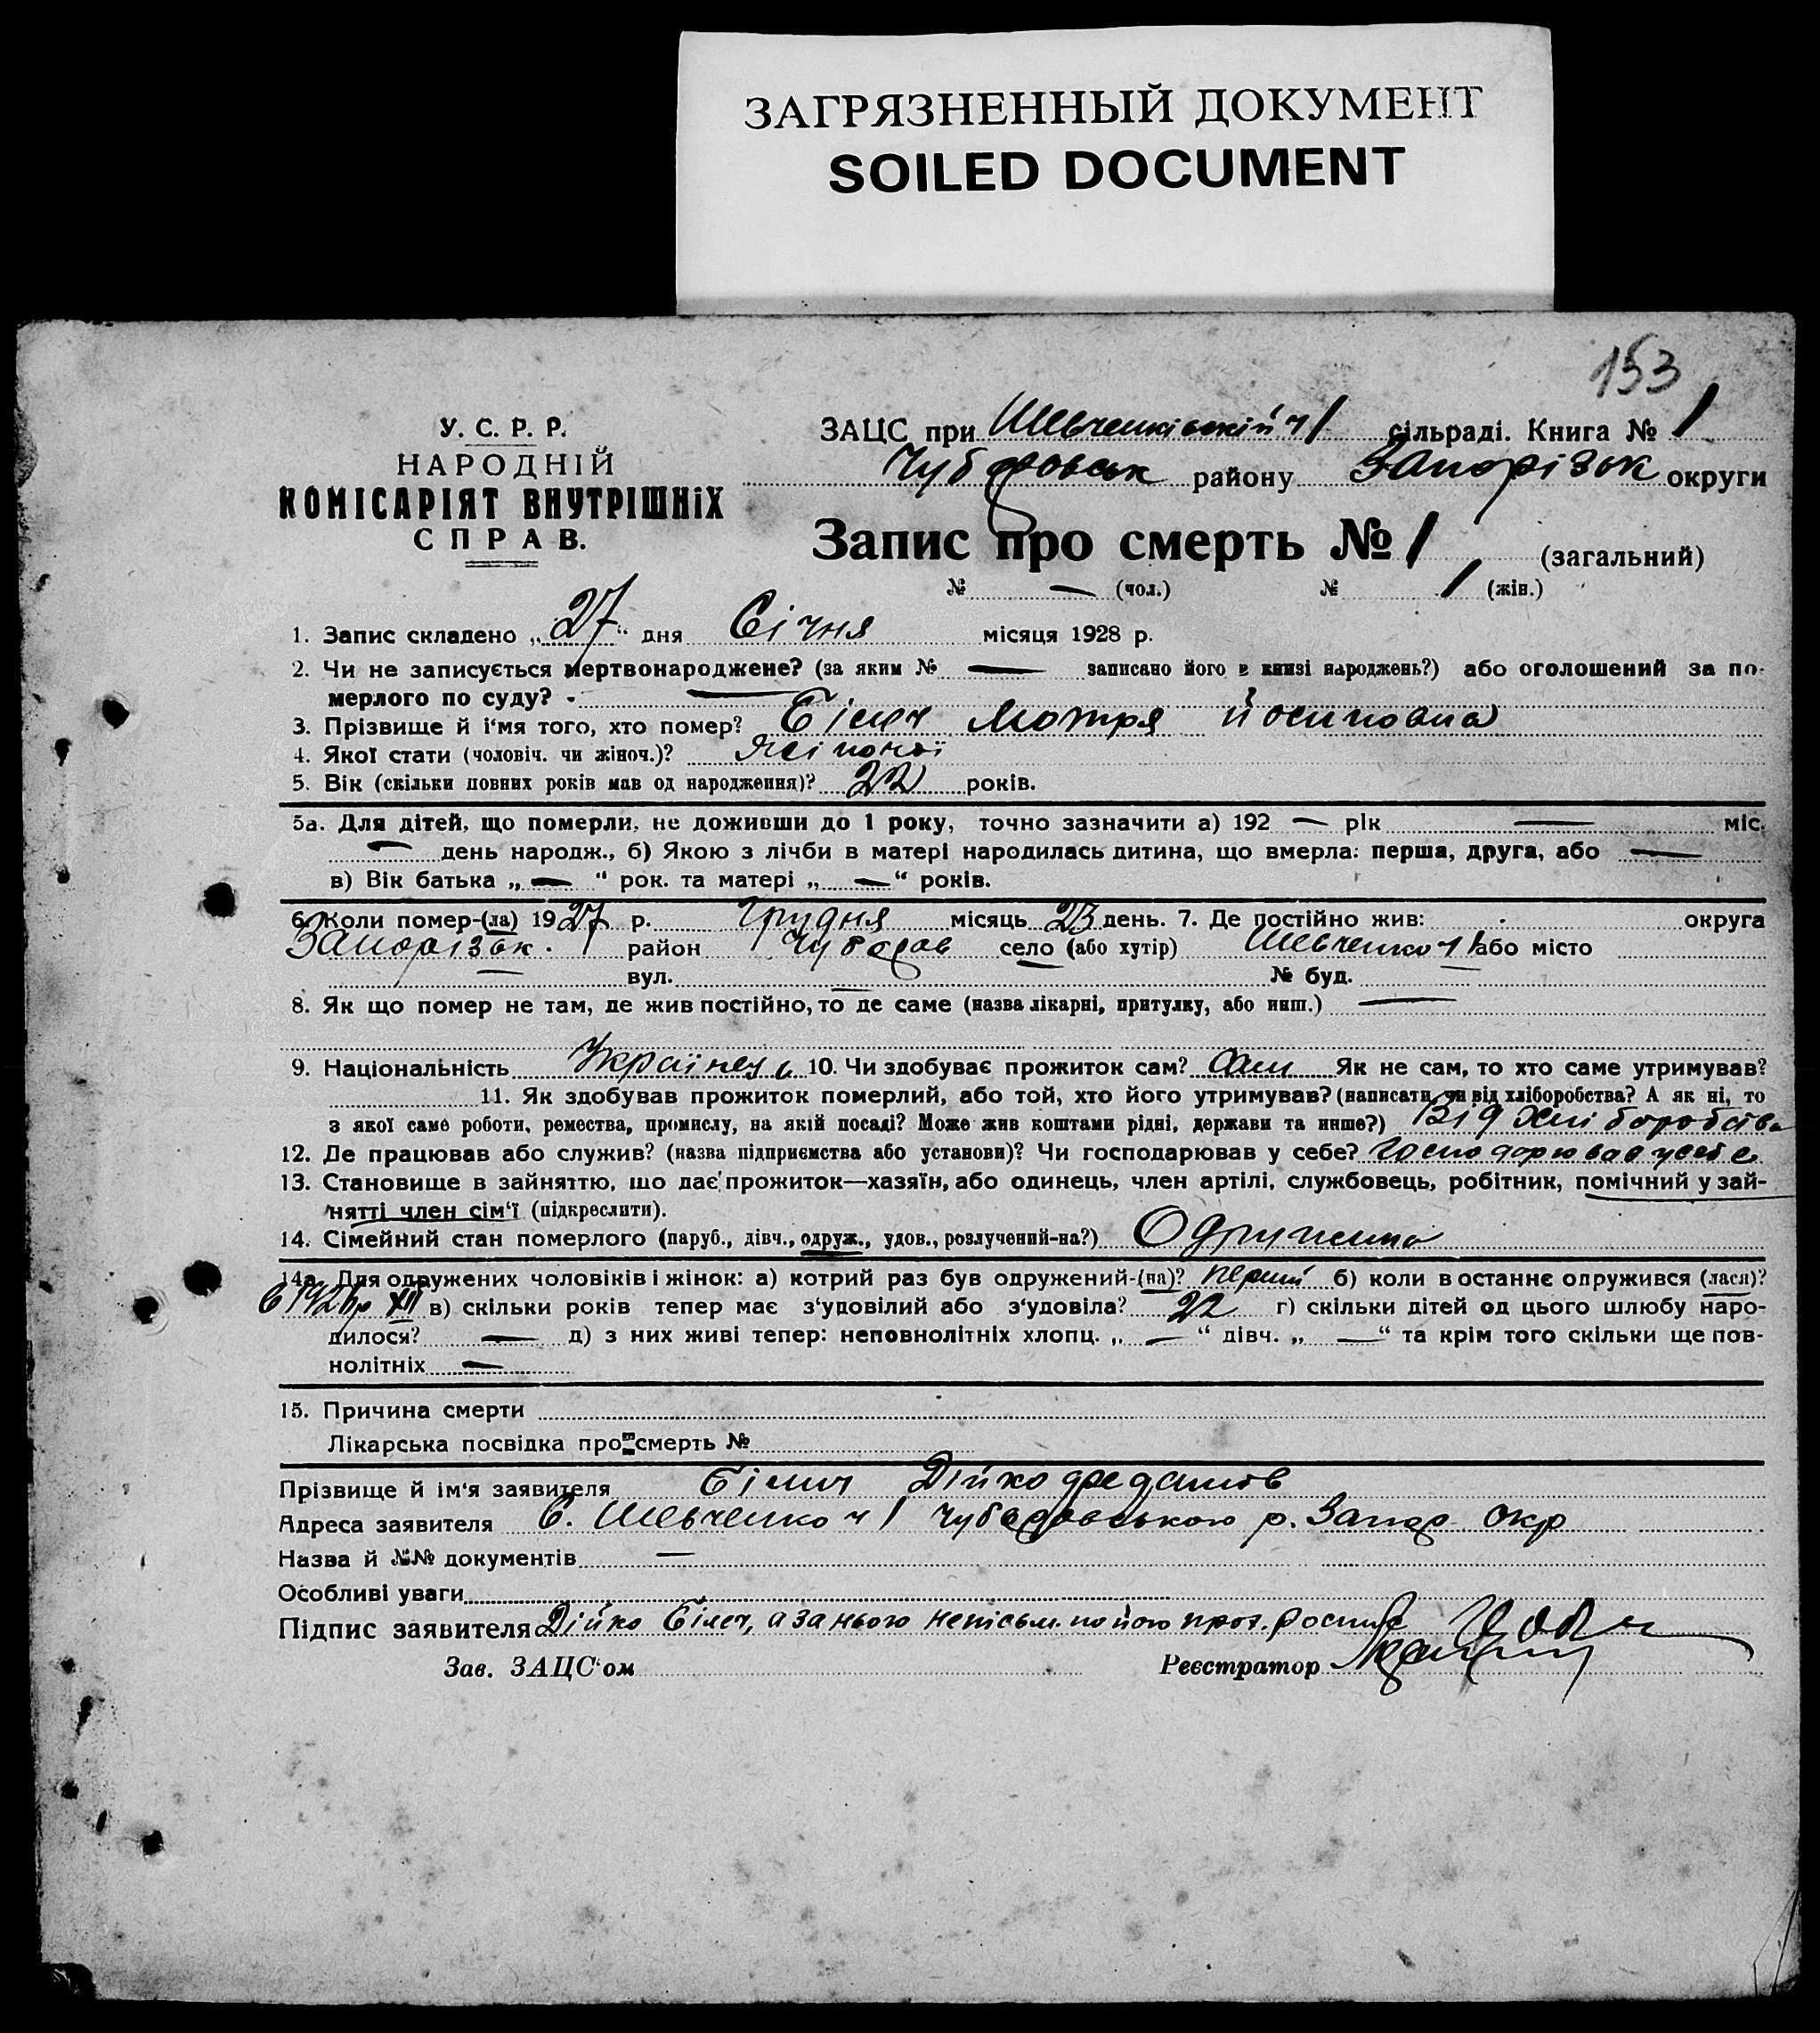 ЗАГРЯЗНЕННЫЙ ДОКУМЕНТ
SOILED DOCUMENT
153
У. С. Р. Р.
НАРОДНІЙ
КОМІСАРІЯТ ВНУТРІШНІХ
СПРАВ.
ЗАЦС при Шевченківській ч 1 сільраді. Книга № 1
району Запорізьк округи
Запис про смерть № 1 (загальний)
№ — (чол.) № 1 (жін.)
1. Запис складено „27“ дня Січня місяця 1928 р.
2. Чи не записується мертвонароджене? (за яким № — записано його в книзі народжень?) або оголошений за по-
мерлого по суду? —
3. Прізвище й і'мя того, хто помер? Біляч Мотря Йосиповна
4. Якої статі (чоловіч. чи жіноч.)?
5. Вік (скільки повних років мав од народження)? 22 років.
5а. Для дітей, що померли, не доживши до 1 року, точно зазначити а) 192 — рік — міс.
— день народж., б) Якою з лічби в матері народилась дитина, що вмерла: перша, друга, або —
в) Вік батька „ — “ рок. та матері „ — “ років.
6. Коли помер-(ла) 1927 р. Грудня місяць 23 день. 7. Де постійно жив: округа
Запорізьк. район село (або хутір) Шевченко ч 1 або місто
— вул. — № буд. —
8. Як що помер не там, де жив постійно, то де саме (назва лікарні, притулку, або инш.) —
9. Національність Українець 10. Чи здобуває прожиток сам? Сам Як не сам, то хто саме утримував?
11. Як здобував прожиток померлий, або той, хто його утримував? (написати чи від хліборобства? А як ні, то
з якої саме роботи, ремества, промислу, на якій посаді? Може жив коштами рідні, держави та инше?) Від хліборобства
12. Де працював або служив? (назва підприємства або установи)? Чи господарював у себе? Господарював у себе
13. Становище в зайняттю, що дає прожиток—хазяїн, або одинець, член артілі, службовець, робітник, помічний у зай-
нятті член сім'ї (підкреслити).
14. Сімейний стан померлого (паруб., дівч., одруж., удов., розлучений-на?) Одружина
14а. Для одружених чоловіків і жінок: а) котрий раз був одружений-(на)? перший б) коли в останнє одружився (лася)?
в 1926р XII в) скільки років тепер має з'удовілий або з'удовіла? 22 г) скільки дітей од цього шлюбу наро-
дилося? — д) з них живі тепер: неповнолітніх хлопц. „ — “ дівч. „ — “ та крім того скільки ще пов-
нолітніх —
15. Причина смерти
Лікарська посвідка про смерть №
Прізвище й ім'я заявителя Дійко
Адреса заявителя С. Шевченко ч 1 р. Запор окр
Назва й №№ документів —
Особливі уваги
Підпис заявителя Дійко Біляч, а за нього неписьм. по його
Зав. ЗАЦС'ом Реєстратор